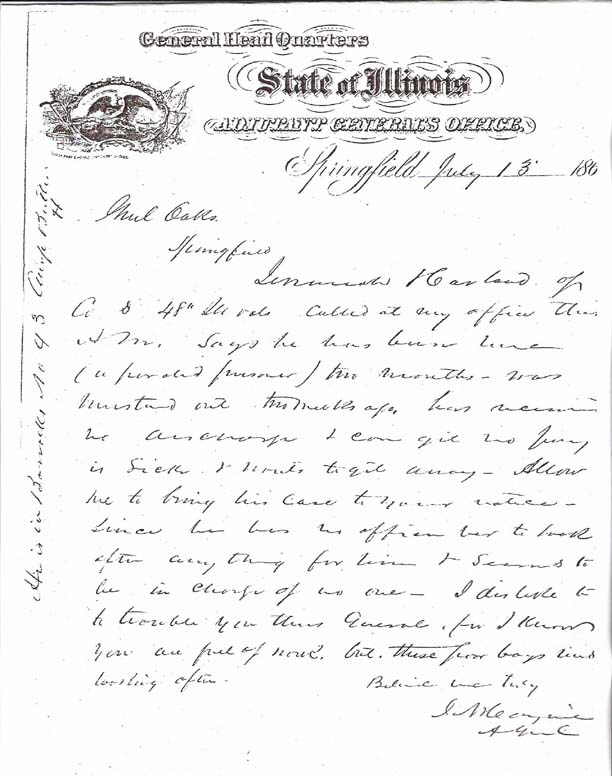 General Head Quarters
State of Illinois
ADJUTANT GENERAL'S OFFICE,
Springfield July 13 186
Genl Oaks
Springfield
Harland of
Co D 48th Ills Vols called at my office this
A M. Says he has been here
(a paroled prisoner) two months - was
mustered out two weeks ago, has
no discharge & can git no pay
is sick & wants to git away - Allow
me to bring his case to your notice -
Since he has no officer here to look
after any thing for him & seems to
be in charge of no one - I dislike to
to trouble you thus General, for I know
you are full of work. but these poor boys need
looking after.
Believe me truly
He is in Barracks No 43 Camp Butler